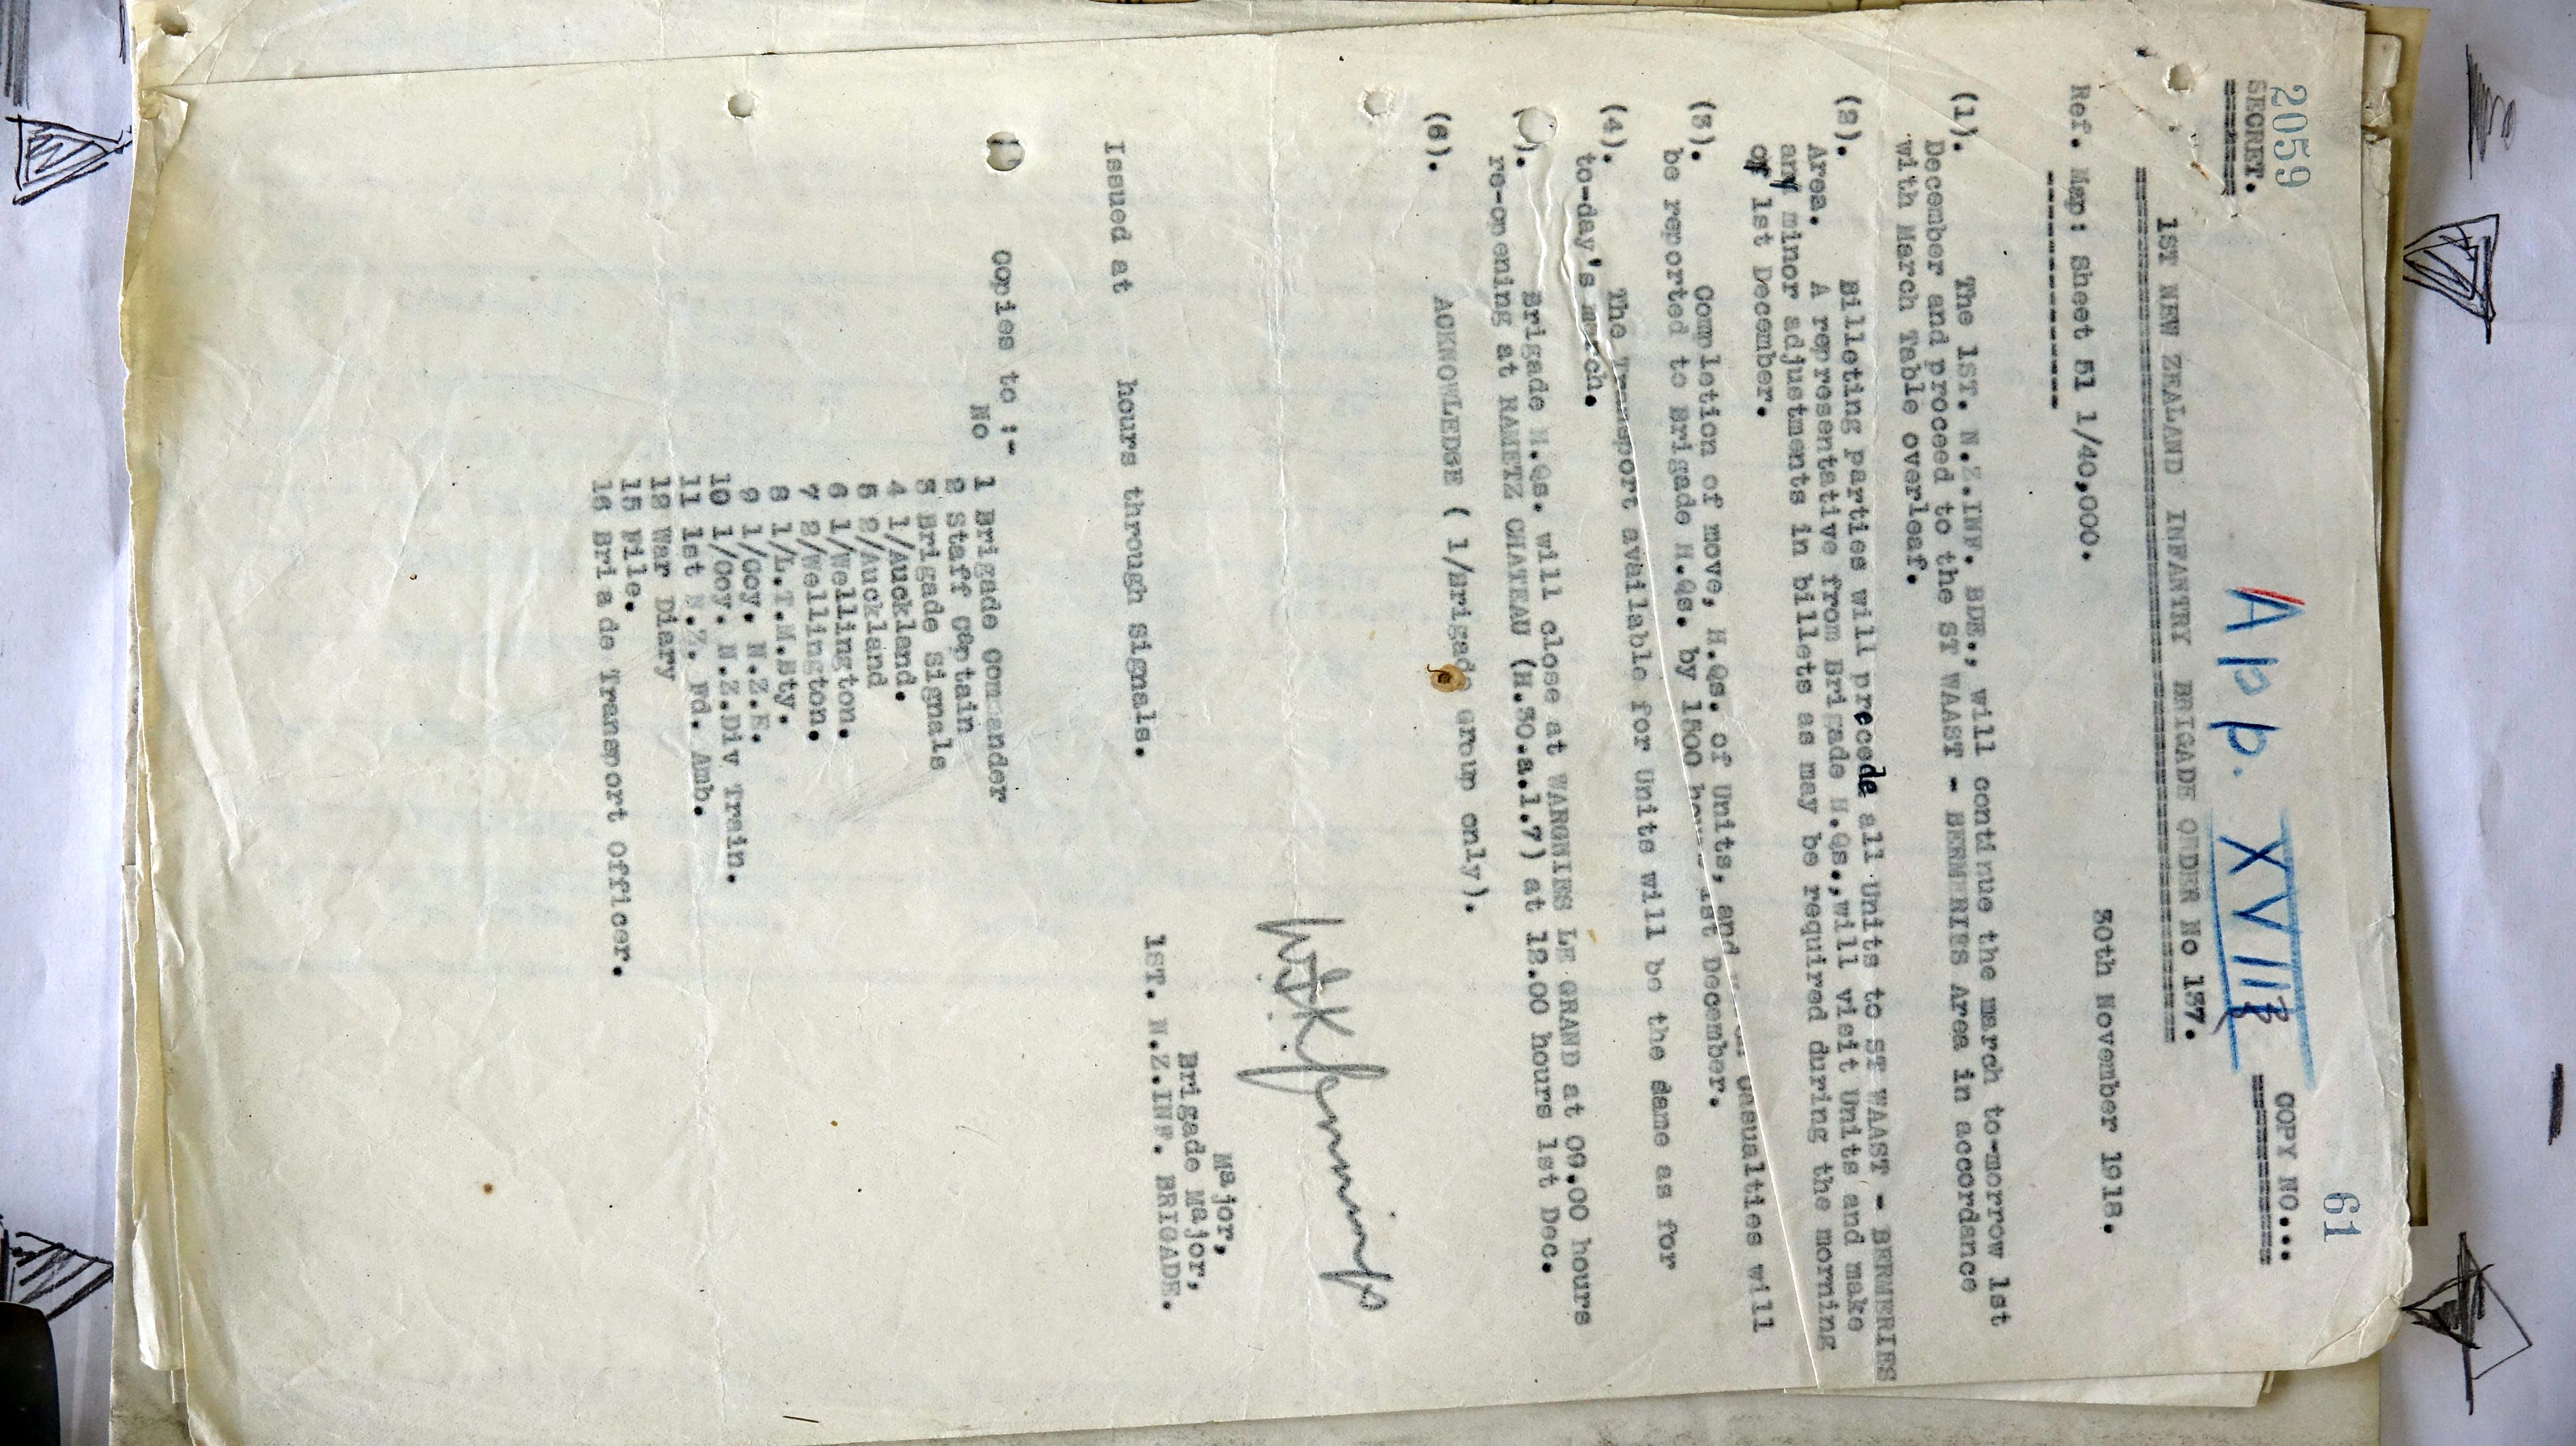 2059
61
SECRET.
App. XVIII
COPY NO....
1ST NEW ZEALAND INFANTRY BRIGADE ORDER No 137.
Ref. Map: Sheet 51 1/40,000.
30th November 1918.
(1). The 1ST. N.Z.INF. BDE., will continue the march to-morrow 1st
December and proceed to the ST WAAST - BERMERIES Area in accordance
with March Table overleaf.
(2). Billeting parties will precede all Units to ST WAAST - BERMERIES
Area. A representative from Brigade H.Qs.,will visit Units and make
any minor adjustments in billets as may be required during the morning
of 1st December.
(3). Completion of move, H.Qs. of Units, and casualties will
be reported to Brigade H.Qs. by 1500 hours 1st December.
(4). The Transport available for Units will be the same as for
to-day's march.
). Brigade H.Qs. will close at WARGNIES LE GRAND at 09.00 hours
re-opening at RAMETZ CHATEAU (H.30.a.1.7) at 12.00 hours 1st Dec.
(6). ACKNOWLEDGE ( 1/Brigade Group only).
Major,
Brigade Major,
1ST. N.Z.INF. BRIGADE.
Issued at hours through Signals.
Copies to :-
No 1 Brigade Commander
2 Staff Captain
3 Brigade Signals
4 1/Auckland.
5 2/Auckland
6 1/Wellington.
7 2/Wellington.
8 1/L.T.M.Bty.
9 1/Coy. N.Z.E.
10 1/Coy. N.Z.Div Train.
11 1st N.Z. Fd. Amb.
12 War Diary
15 File.
16 Bri a de Transport Officer.